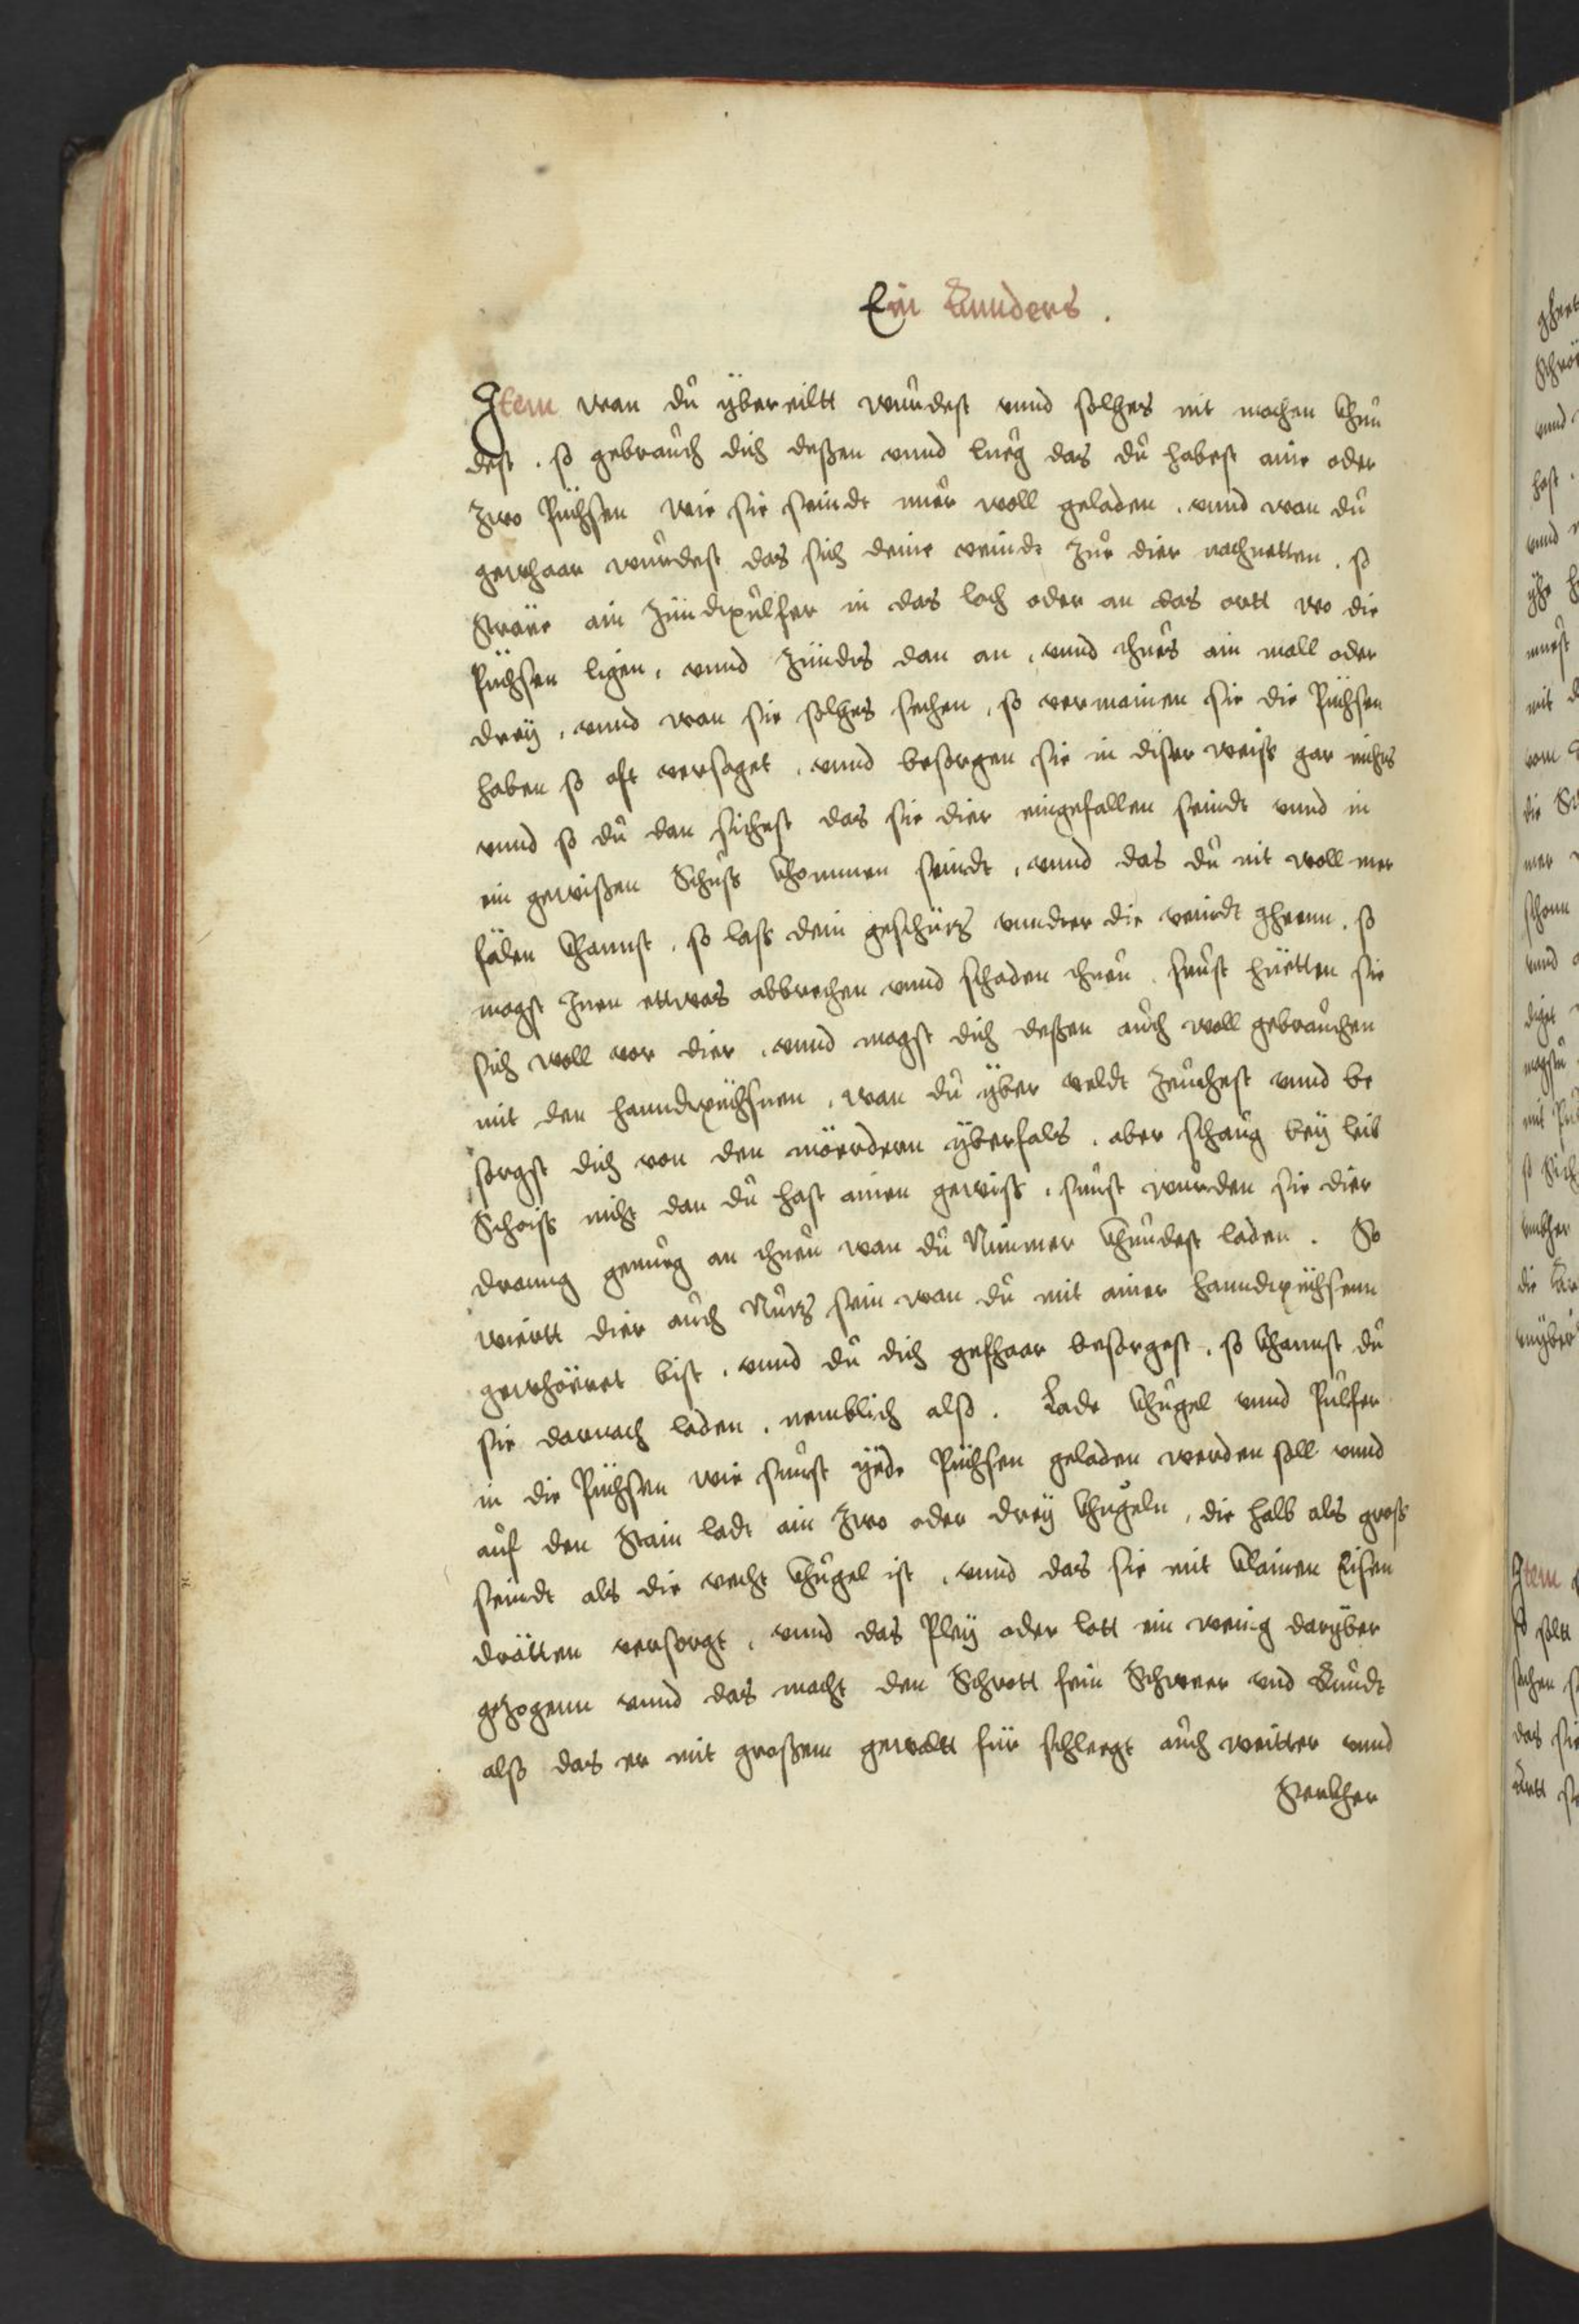 Ein Annders .
Item wan du ÿbereiltt wurdest vnnd solhes nit machen khun
dest . so gebrauch dich deßen vnnd lueg das du habest aine oder
zwo Püchsen wie sie seindt nuer woll geladen . vnnd wan du
gewhaar wurdest das sich deine veindt zue dier nachnetten . so
Sträre ain Zündtpulfer in das loch oder an das ortt wo die
Püchsen ligen , vnnd Zündts dan an , vnnd thues ain mall oder
dreÿ , vnnd wan sie solhes sechen , so vermainen sie die Püchsen
haben so oft versaget , vnnd besorgen sie in diser weiss gar nichts
vnnd so du dan sichest das sie dier eingefallen seindt vnnd in
ein gewißen Schuss khommen seindt , vnnd das du nit woll mer
fälen khannst . so lass dein geschürz vnndter die veindt gheenn . so
magst Jnen ettwas abbrechen vnnd schaden thuen . sunst hüetten sie
sich woll vor dier , vnnd magst dich deßen auch woll gebrauchen
mit den hanndtpüchsnen , wan du ÿber veldt zeuchest vnnd be
sorgst dich von den mörderrn ÿberfals . aber schaug beÿ leib
Schoiss nicht dan du hast ainen gewiss , sunst wurden sie dier
dranng genueg an thuen wan du Nimmer khundest laden . So
wiertt dier auch Nuz sein wan du mit ainer hanndtpüchsenn
gewhöeret bist , vnnd du dich gefhaar besorgest , so khannst du
sie darnach laden , nemblich also . Lade khugel vnnd Pulfer
in die Püchsen wie sunst ÿede Püchsen geladen werden soll vnnd
auf den Stain ladt ain zwo oder dreÿ khugeln , die halb als gross
seindt als die recht khugel ist , vnnd das sie mit khlainen Eisen
drätten versorgt , vnnd das Pleÿ oder lott ein wenig darÿber
gezogenn vnnd das macht den Schrott fein Schwer vnd Rundt
also das er mit großem gewaltt für schleegt auch weitter vnnd
Sterkher